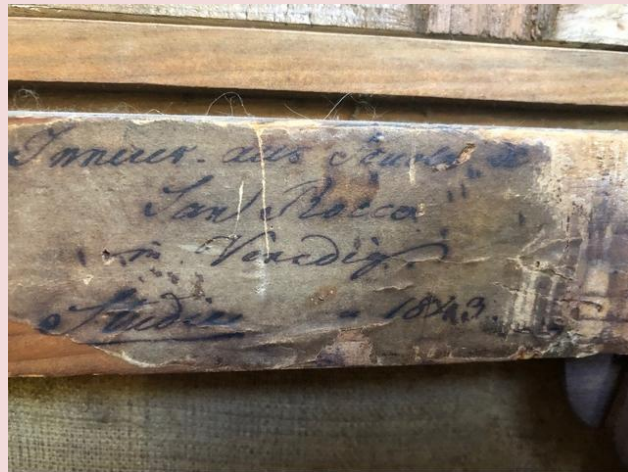 Inneres aus Scuola di
San Rocco
in Venedig.
Studie 1843.